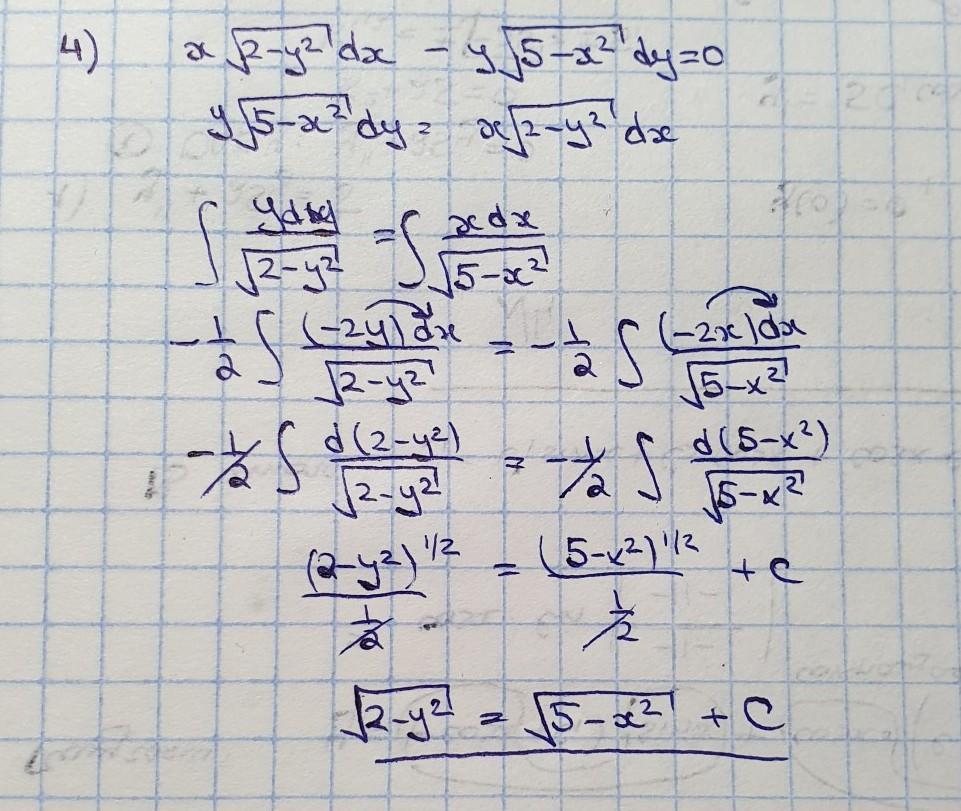 4) x√(2-y²) dx - y√(5-x²) dy=0
y√(5-x²) dy = x√(2-y²) dx
∫ ydy/√(2-y²) = ∫ xdx/√(5-x²)
-1/2 ∫ (-2y)dx/√(2-y²) = -1/2 ∫ (-2x)dx/√(5-x²)
-1/2 ∫ d(2-y²)/√(2-y²) = -1/2 ∫ d(5-x²)/√(5-x²)
(2-y²)^1/2 / 1/2 = (5-x²)^1/2 / 1/2 + C
√(2-y²) = √(5-x²) + C